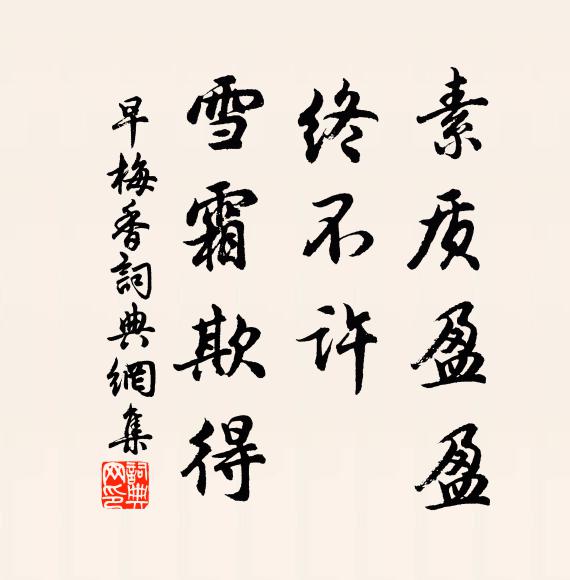 素质盈盈
终不许
雪霜欺得
早梅香詞典網集
詞典
网印